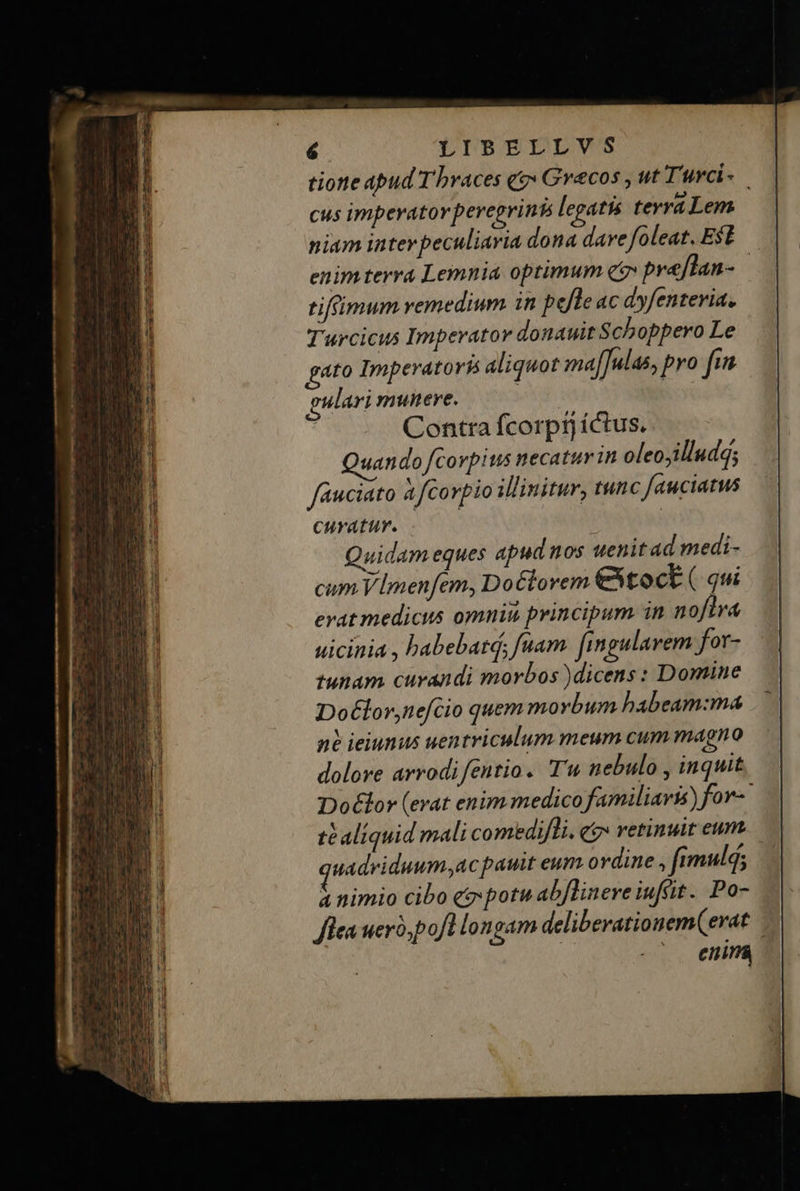 6 LIBELLVS
tione apud Thraces & Græcos, ut Turci-
cus imperator peregrinis legatis terrā Lem
niam inter peculiaria dona dare ſoleat. Eſt
enim terra Lemnia optimum & præſtan-
tiſsimum remedium in peſte ac dyſenteria.
Turcicus Imperator donauit Schoppero Le
gato Imperatoris aliquot maſſulas, pro ſin
gulari munere.
Contra ſcorpij ictus.
Quando ſcorpius necatur in oleo, illudq;
ſauciato à ſcorpio illinitur, tunc ſauciatus
curatur.
Quidam eques apud nos uenit ad medi-
cum Vlmenſem, Doctorem Stock ( qui
erat medicus omniū principum in noſtra
uicinia, habebatq; ſuam ſingularem for-
tunam curandi morbos ) dicens: Domine
Doctor, neſcio quem morbum habeam: ma
nè ieiunus uentriculum meum cum magno
dolore arrodi ſentio. Tu nebulo, inquit
Doctor (erat enim medico familiaris) for-
tè aliquid mali comediſti. & retinuit eum
quadriduum, ac pauit eum ordine, ſimulq;
à nimio cibo & potu abſtinere iuſsit. Po-
ſtea uerò, poſt longam deliberationem (erat
enim